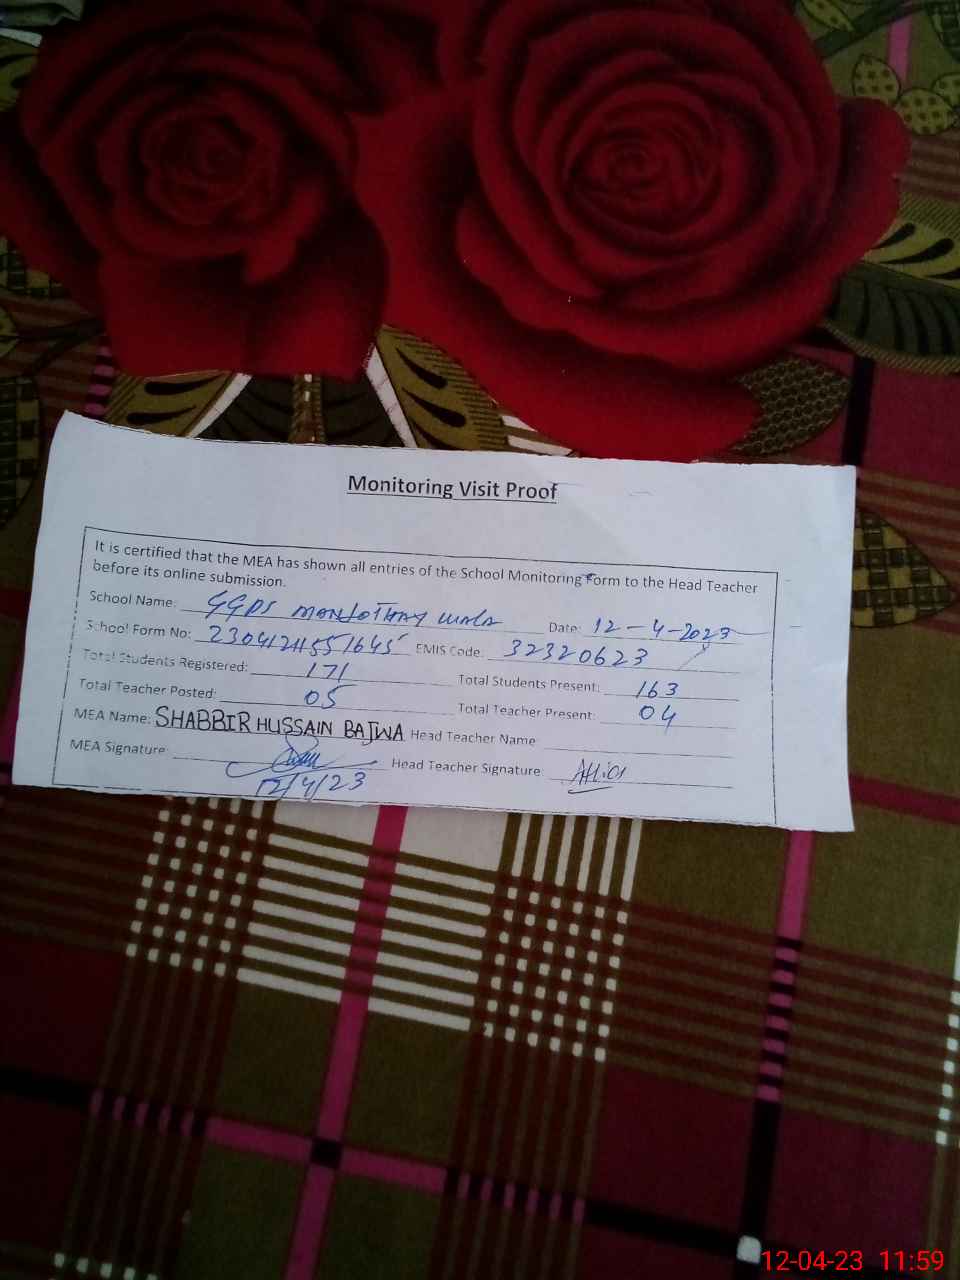 Monitoring Visit Proof
It is certified that the MEA has shown all entries of the School Monitoring Form to the Head Teacher
before its online submission.
School Name: GGPS Date: 12-4-2023
School Form No: EMIS Code: 32320623
Total Students Registered: 171 Total Students Present: 163
Total Teacher Posted: 05 Total Teacher Present: 04
MEA Name: SHABBIR HUSSAIN BAJWA Head Teacher Name:
MEA Signature: Head Teacher Signature:
12/4/23
12-04-23 11:59